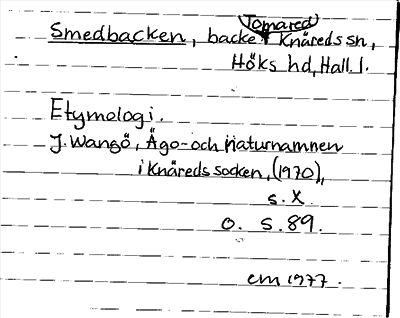 Tomared
Smedbacken, backe i Knäreds sn,
Höks hd, Hall. l.
Etymologi.
J. Wangö, Ägo- och naturnamnen
i Knäreds socken, (1970),
s. X.
o. s. 89.
cm 1977.